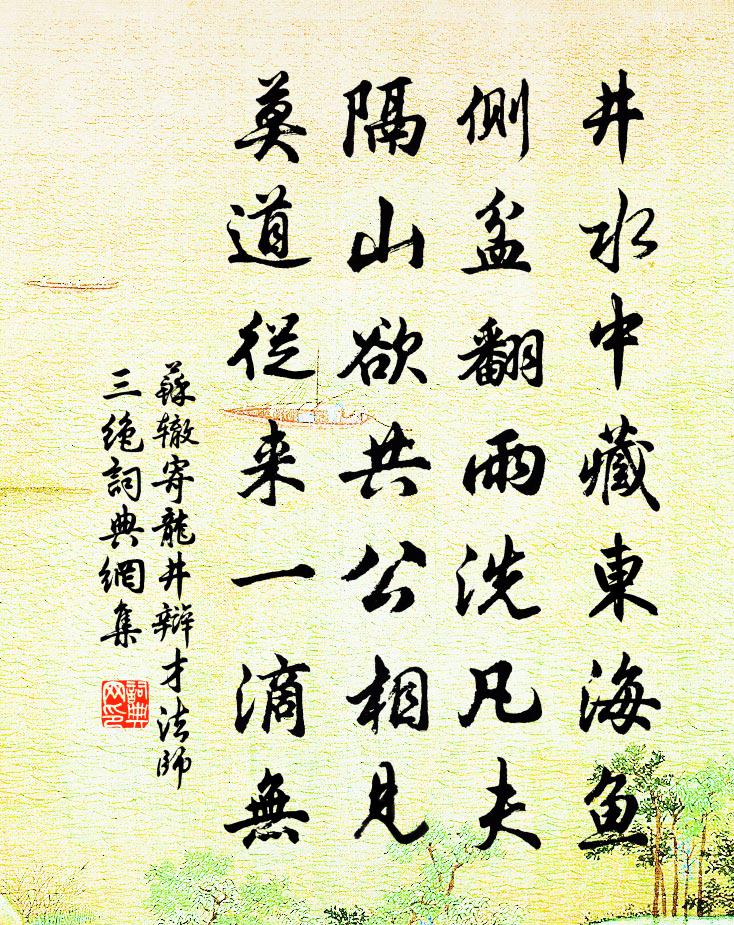 井水中藏東海魚
側盆翻雨洗凡夫
隔山欲共公相見
莫道從来一滴無
蘇辙寄龍井辯才法師
三絶詞典網集
詞典
网印